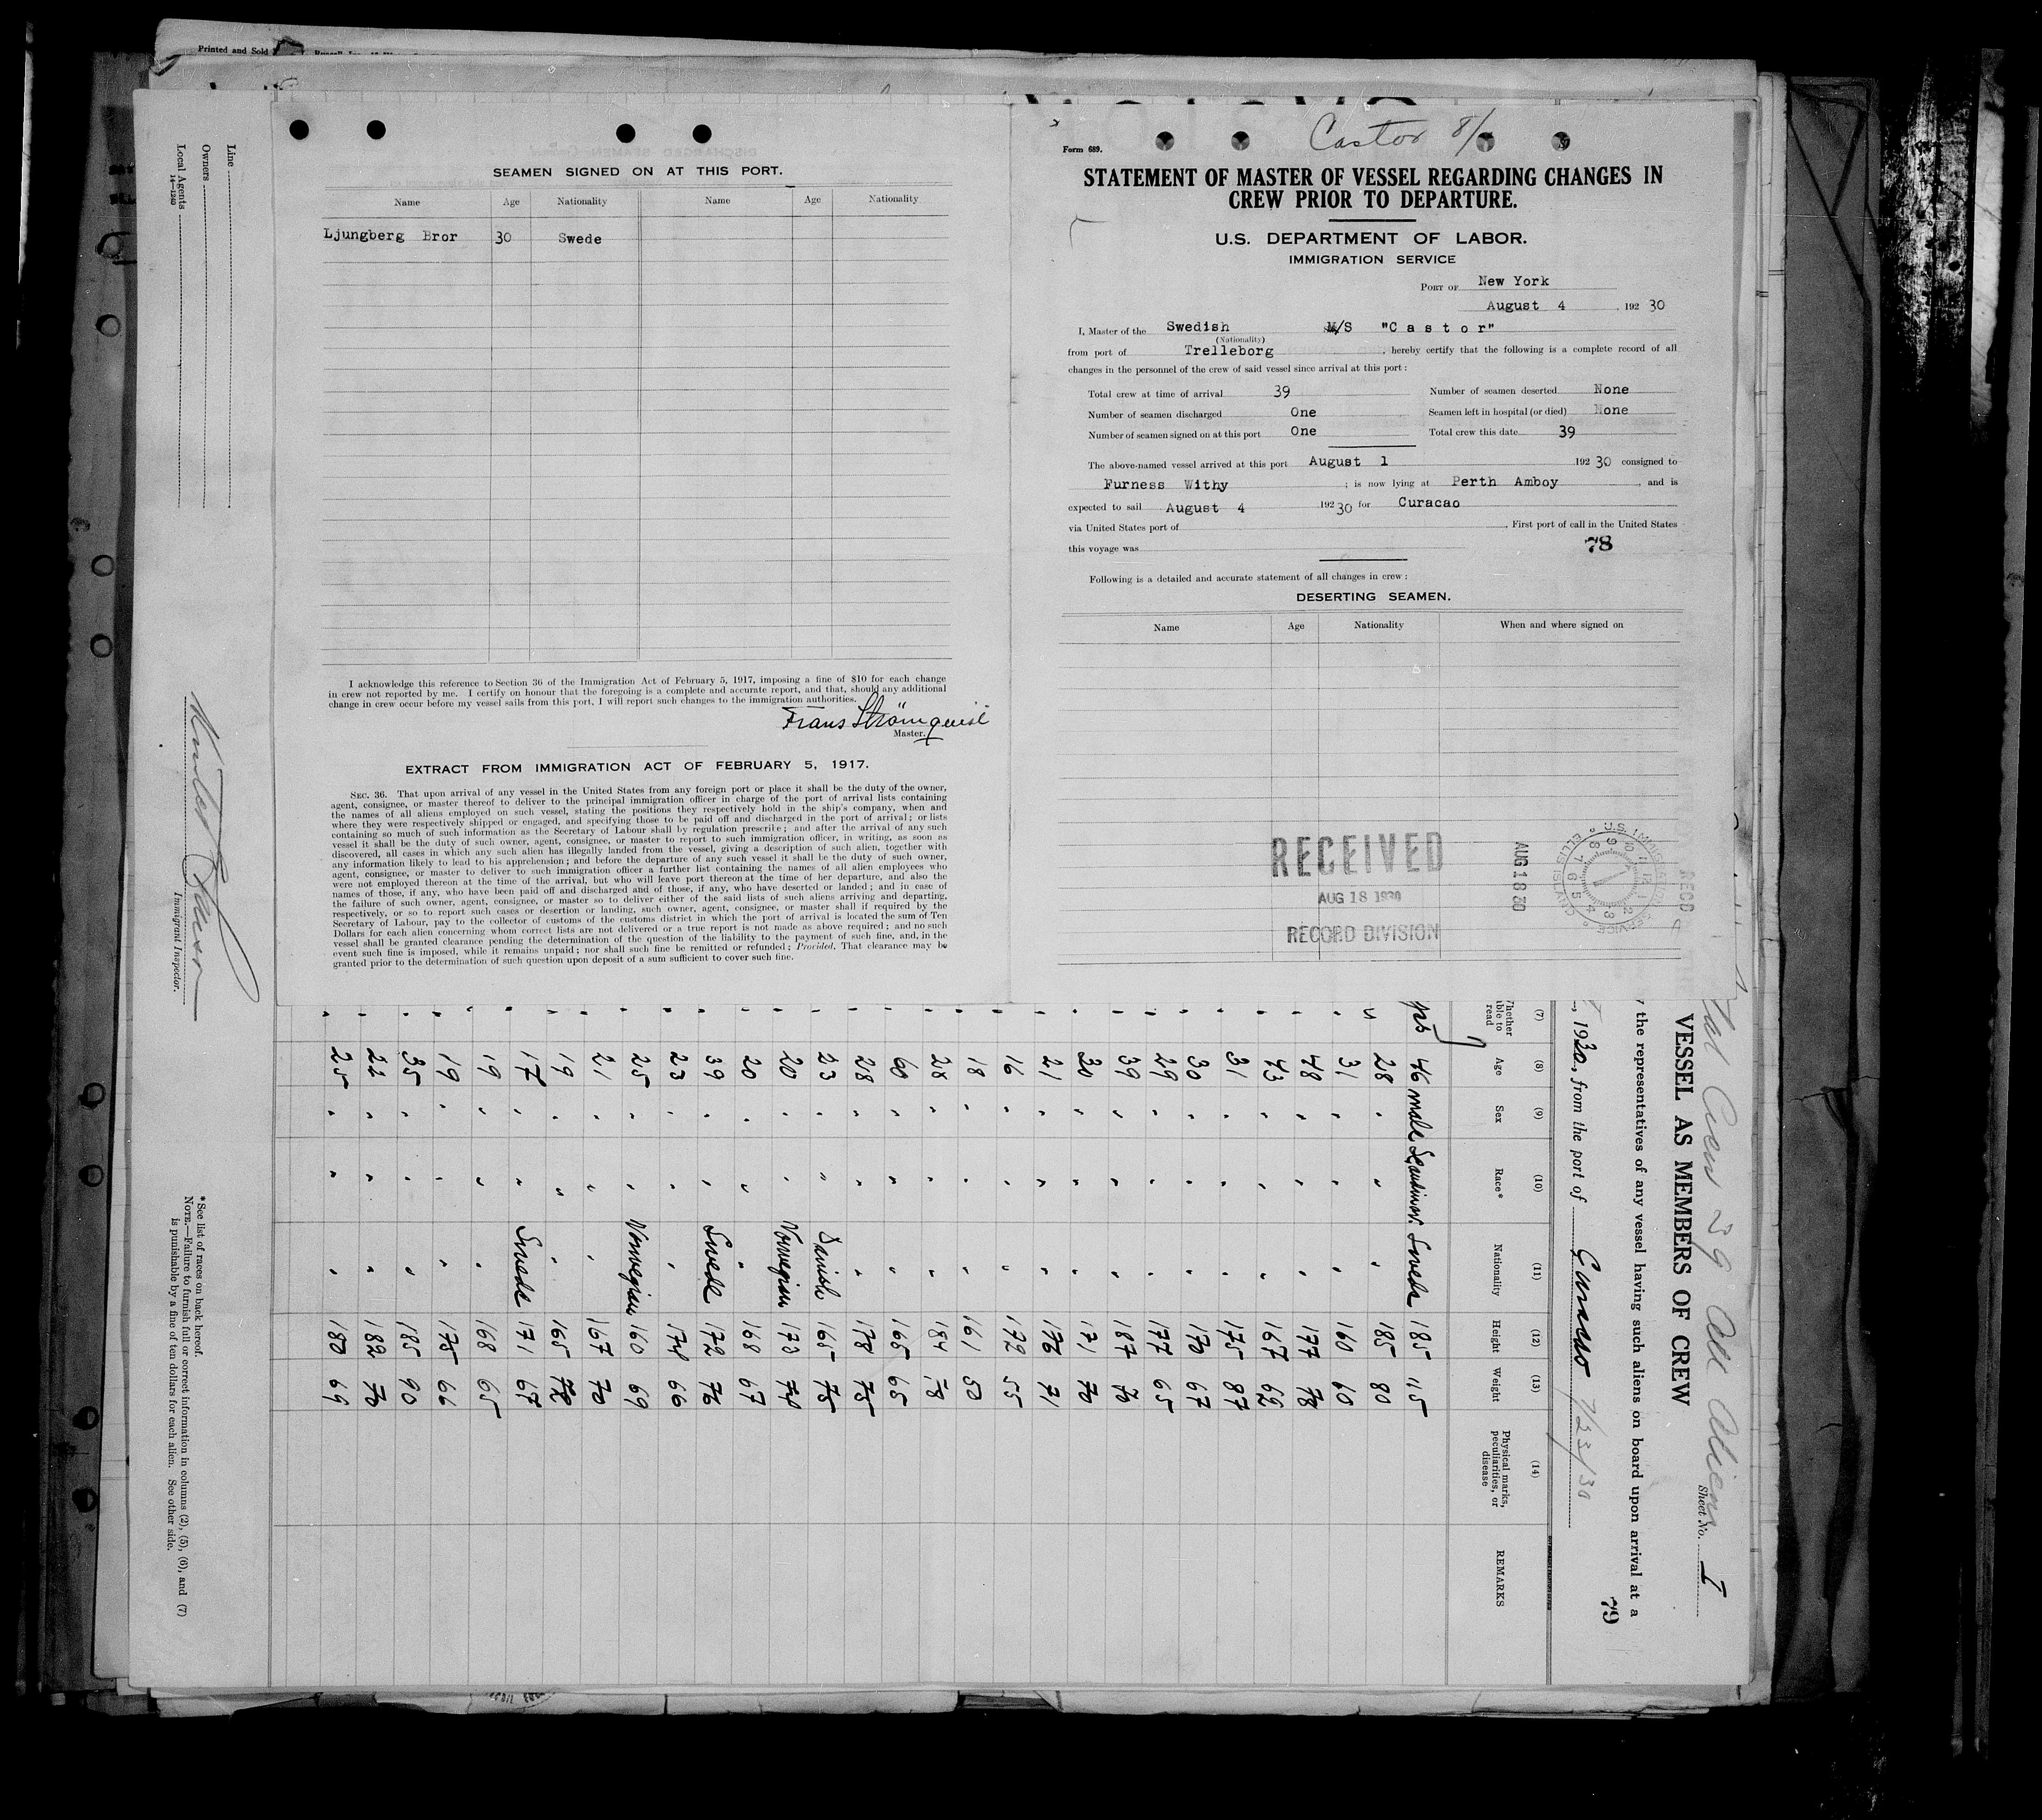 Printed and Sold
SEAMEN SIGNED ON AT THIS PORT.
Name Age Nationality Name Age Nationality
Ljungberg Bror 30 Swede
I acknowledge this reference to Section 36 of the Immigration Act of February 5, 1917, imposing a fine of $10 for each change
in crew not reported by me. I certify on honour that the foregoing is a complete and accurate report, and that, should any additional
change in crew occur before my vessel sails from this port, I will report such changes to the immigration authorities.
Frans Strömquist
Master.
EXTRACT FROM IMMIGRATION ACT OF FEBRUARY 5, 1917.
SEC. 36. That upon arrival of any vessel in the United States from any foreign port or place it shall be the duty of the owner,
agent, consignee, or master thereof to deliver to the principal immigration officer in charge of the port of arrival lists containing
the names of all aliens employed on such vessel, stating the positions they respectively hold in the ship's company, when and
where they were respectively shipped or engaged, and specifying those to be paid off and discharged in the port of arrival; or lists
containing so much of such information as the Secretary of Labour shall by regulation prescribe; and after the arrival of any such
vessel it shall be the duty of such owner, agent, consignee, or master to report to such immigration officer, in writing, as soon as
discovered, all cases in which any such alien has illegally landed from the vessel, giving a description of such alien, together with
any information likely to lead to his apprehension; and before the departure of any such vessel it shall be the duty of such owner,
agent, consignee, or master to deliver to such immigration officer a further list containing the names of all alien employees who
were not employed thereon at the time of the arrival, but who will leave port thereon at the time of her departure, and also the
names of those, if any, who have been paid off and discharged and of those, if any, who have deserted or landed; and in case of
the failure of such owner, agent, consignee, or master so to deliver either of the said lists of such aliens arriving and departing,
respectively, or so to report such cases or desertion or landing, such owner, agent, consignee, or master shall if required by the
Secretary of Labour, pay to the collector of customs of the customs district in which the port of arrival is located the sum of Ten
Dollars for each alien concerning whom correct lists are not delivered or a true report is not made as above required; and no such
vessel shall be granted clearance pending the determination of the question of the liability to the payment of such fine, and, in the
event such fine is imposed, while it remains unpaid; nor shall such fine be remitted or refunded; Provided, That clearance may be
granted prior to the determination of such question upon deposit of a sum sufficient to cover such fine.
Castor 8/
Form 689.
STATEMENT OF MASTER OF VESSEL REGARDING CHANGES IN
CREW PRIOR TO DEPARTURE.
U.S. DEPARTMENT OF LABOR.
IMMIGRATION SERVICE
PORT OF New York
August 4 192 30
I, Master of the Swedish M/S "Castor"
(Nationality)
from port of Trelleborg, hereby certify that the following is a complete record of all
changes in the personnel of the crew of said vessel since arrival at this port:
Total crew at time of arrival 39 Number of seamen deserted None
Number of seamen discharged One Seamen left in hospital (or died) None
Number of seamen signed on at this port One Total crew this date 39
The above-named vessel arrived at this port August 1 192 30 consigned to
Furness Withy; is now lying at Perth Amboy, and is
expected to sail August 4 192 30 for Curacao
via United States port of . First port of call in the United States
this voyage was
78
Following is a detailed and accurate statement of all changes in crew:
DESERTING SEAMEN.
Name Age Nationality When and where signed on
RECEIVED
AUG 18 1930
RECORD DIVISION
AUG 18 30
IMMIGRATION SERVICE ELLIS ISLAND
Line
Owners
Local Agents
14—1240
Immigrant Inspector.
*See list of races on back hereof.
NOTE.—Failure to furnish full or correct information in columns (2), (5), (6), and (7)
is punishable by a fine of ten dollars for each alien. See other side.
Crew 39 all Aliens
Sheet No. I
VESSEL AS MEMBERS OF CREW
the representatives of any vessel having such aliens on board upon arrival at a
79
, 1930, from the port of Curacao 7/23/30
(7) (8) (9) (10) (11) (12) (13) (14)
Whether able to read Age Sex Race* Nationality Height Weight Physical marks, peculiarities, or disease REMARKS
yes 46 male Scandinav. Swede 185 115
" 28 " " " 185 80
" 31 " " " 160 60
" 48 " " " 177 78
" 43 " " " 167 62
" 31 " " " 175 87
" 30 " " " 170 67
" 29 " " " 177 65
" 39 " " " 187 70
" 30 " " " 171 70
" 21 " " " 176 71
" 16 " " " 172 55
" 18 " " " 161 50
" 28 " " " 184 78
" 60 " " " 165 65
" 28 " " " 178 75
" 23 " " Danish 165 75
" 20 " " Norwegian 173 74
" 20 " " " 168 67
" 39 " " Swede 172 76
" 23 " " " 174 66
" 25 " " Norwegian 160 69
" 21 " " " 167 70
" 19 " " " 165 72
" 17 " " Swede 171 67
" 19 " " " 168 65
" 19 " " " 175 66
" 35 " " " 185 90
" 22 " " " 182 70
" 25 " " " 180 69